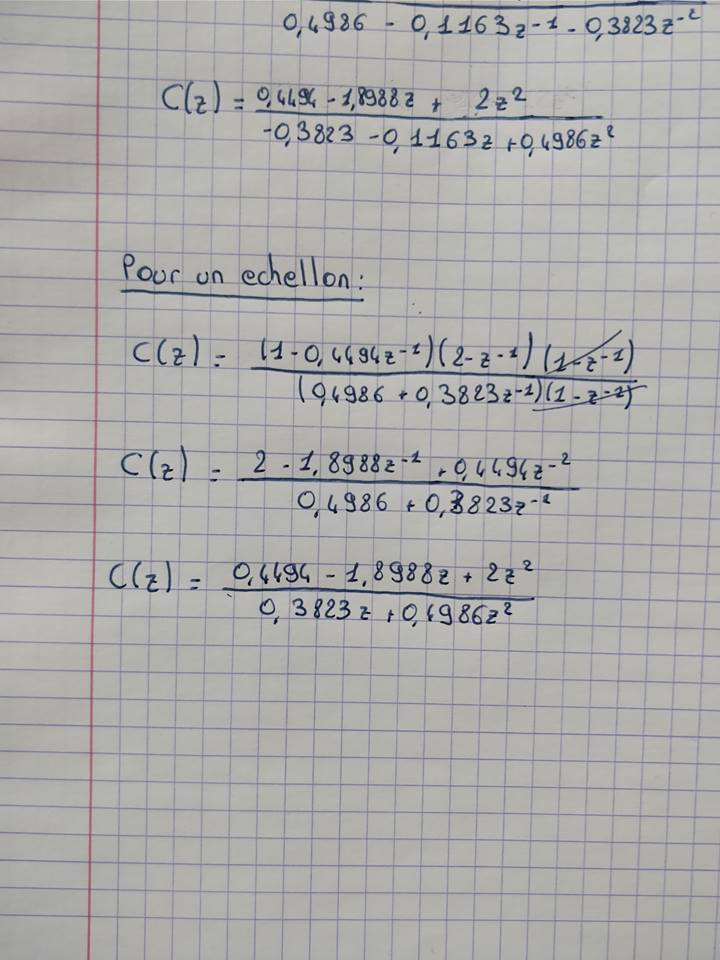 0,4986 - 0,1163z⁻¹ - 0,3823z⁻²
C(z) = 0,4494 - 1,8988z + 2z²
-0,3823 - 0,1163z + 0,4986z²
Pour un echellon:
C(z) = (1 - 0,4494z⁻¹)(2 - z⁻¹)(1 - z⁻¹)
(0,4986 + 0,3823z⁻¹)(1 - z⁻¹)
C(z) = 2 - 1,8988z⁻¹ + 0,4494z⁻²
0,4986 + 0,3823z⁻¹
C(z) = 0,4494 - 1,8988z + 2z²
0,3823z + 0,4986z²